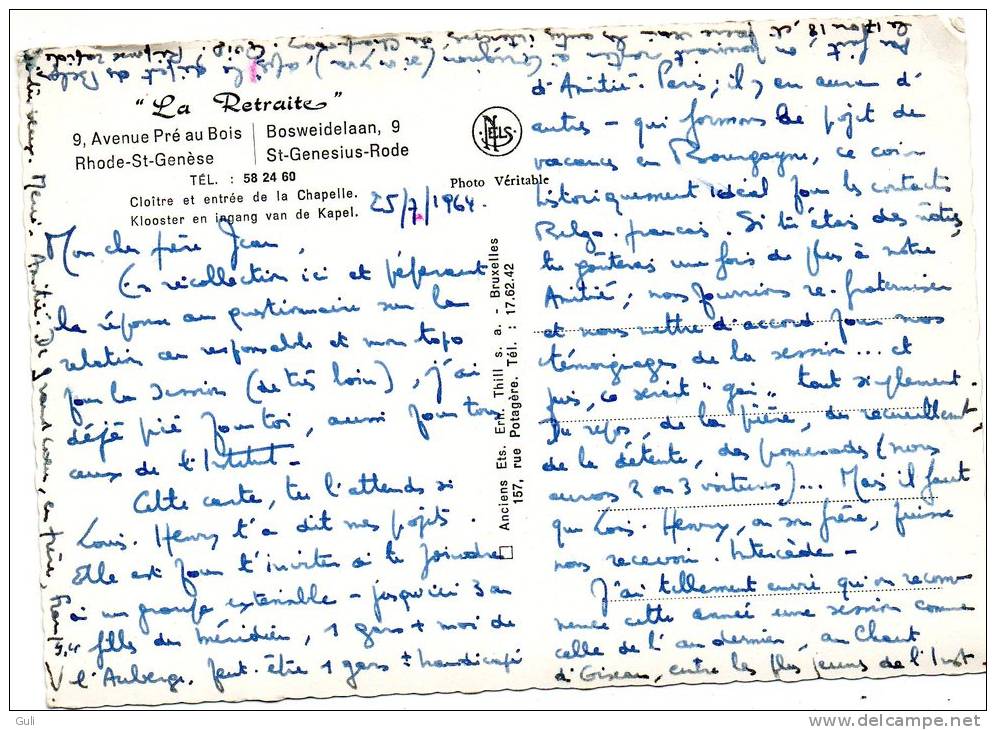 "La Retraite"
9, Avenue Pré au Bois
Rhode-St-Genèse
Bosweidelaan, 9
St-Genesius-Rode
TÉL. : 58 24 60
Cloître et entrée de la Chapelle.
Klooster en ingang van de Kapel.
NELS
Photo Véritable
Anciens Ets. Ern. Thill s. a. - Bruxelles
157, rue Potagère. Tél. : 17.62.42
25/7/1964.
Mon cher frère Jean,
En récollection ici et préparant
la réponse au questionnaire sur la
relation au responsable et mon topo
pour la session (de très loin), j'ai
déjà prié pour toi, aussi pour tous
ceux de l'Institut -
Cette carte, tu l'attends si
Louis-Henry t'a dit mes projets.
Elle est pour t'inviter à te joindre
à un groupe extensible - jusqu'ici 3 an
filles du méridien, 1 gars + moi de
l'Auberge, peut-être 1 gars ± handicapé
d'Amitié-Paris; il y en aura d'
autres - qui formons le projet de
vacances en Bourgogne, ce coin
historiquement idéal pour les contacts
Belgo-français. Si tu étais des nôtres,
tu goûterais une fois de plus à notre
Amitié; nous pourrions re-fraterniser
et nous mettre d'accord pour nos
témoignages de la session... et
puis, ce serait "gai" tout simplement.
Du repos, de la prière, du recueillement,
de la détente, des promenades (nous
aurons 2 ou 3 voitures)... Mais il faut
que Louis-Henry, ou son frère, puisse
nous recevoir. Intercède -
J'ai tellement envie qu'on recom
mence cette année une session comme
celle de l'an dernier, au Chant
d'Oiseau, entre les plus jeunes de l'Inst.
Merci. Amitié. De grand coeur, en frère,